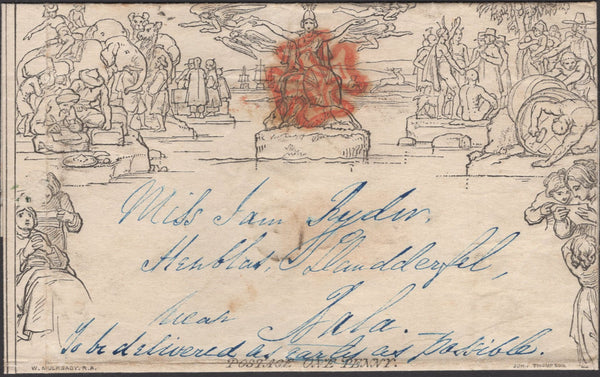 Miss Jam Ryder.
Henblas, Llandderfel,
near Bala.
To be delivered as early as possible.
POSTAGE ONE PENNY.
W. MULREADY. R.A.
JOHN THOMPSON